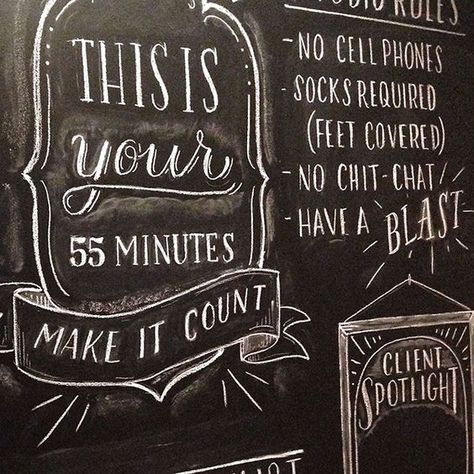 THIS IS
your
55 MINUTES
MAKE IT COUNT
RULES
- NO CELL PHONES
- SOCKS REQUIRED
(FEET COVERED)
- NO CHIT-CHAT
- HAVE A BLAST
CLIENT
SPOTLIGHT